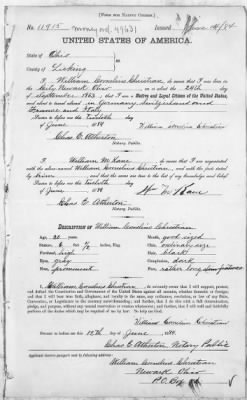 [FORM FOR NATIVE CITIZEN.]
No. 11915 Issued June 14/84
UNITED STATES OF AMERICA.
State of Ohio
County of Licking
I, William Cornelius Christian, do swear that I was born in the
City Newark Ohio, on or about the 24th day
of September 1863; that I am a Native and Loyal Citizen of the United States,
and about to travel abroad in Germany Switzerland and
France and Italy
Sworn to before me this Twelfth day
of June 1884 William Cornelius Christian
Chas E Atherton
Notary Public.
I, William M Kane, do swear that I am acquainted
with the above-named William Cornelius Christian, and with the facts stated
by him, and that the same are true to the best of my knowledge and belief.
Sworn to before me this twelfth day
of June 1884 W M Kane
Chas E Atherton
Notary Public.
DESCRIPTION OF William Cornelius Christian
Age: 20 years. Mouth: good sized
Stature: 6 feet 1/2 inches, Eng. Chin: ordinary size
Forehead: high Hair: black
Eyes: gray Complexion: dark
Nose: prominent Face: rather long
I, William Cornelius Christian, do solemnly swear that I will support, protect,
and defend the Constitution and Government of the United States against all enemies, whether domestic or foreign; and
that I will bear true faith, allegiance, and loyalty to the same, any ordinance, resolution, or law of any State,
Convention, or Legislature to the contrary notwithstanding; and further, that I do this with a full determination,
pledge, and purpose, without any mental reservation or evasion whatsoever; and further, that I will well and faithfully
perform all the duties which may be required of me by law. So help me God.
William Cornelius Christian
Sworn to before me this 12th day of June, 1884
Chas E Atherton Notary Public
Applicant desires passport sent to following address:
William Cornelius Christian
Newark Ohio
P.O. Box